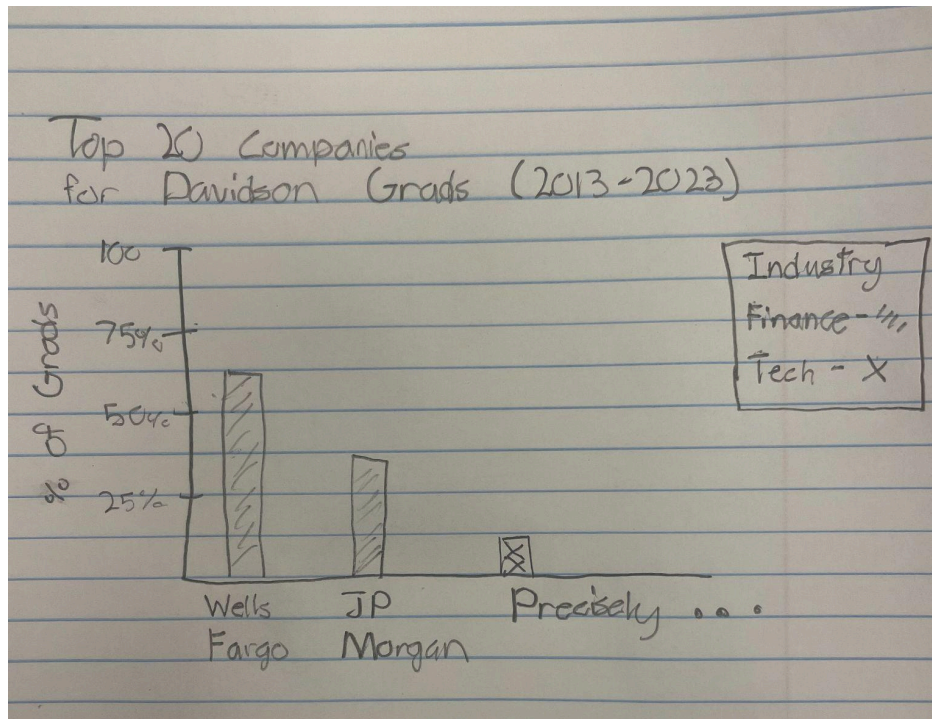 Top 20 Companies
for Davidson Grads (2013-2023)
100
75%
50%
25%
% of Grads
Industry
Finance - ////
Tech - X
Wells
Fargo
JP
Morgan
Precisely ...